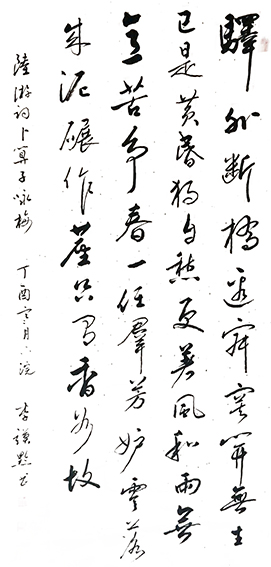 驛外斷橋邊寂寞開無主
已是黃昏獨自愁更著風和雨無
意苦爭春一任羣芳妒零落
成泥碾作塵只有香如故
陸游詞卜算子咏梅 丁酉 月 李